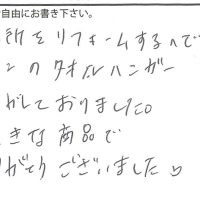 自由にお書き下さい。
所をリフォームするので
ンのタオルハンガー
がしておりました。
きな商品で
がとうございました♡